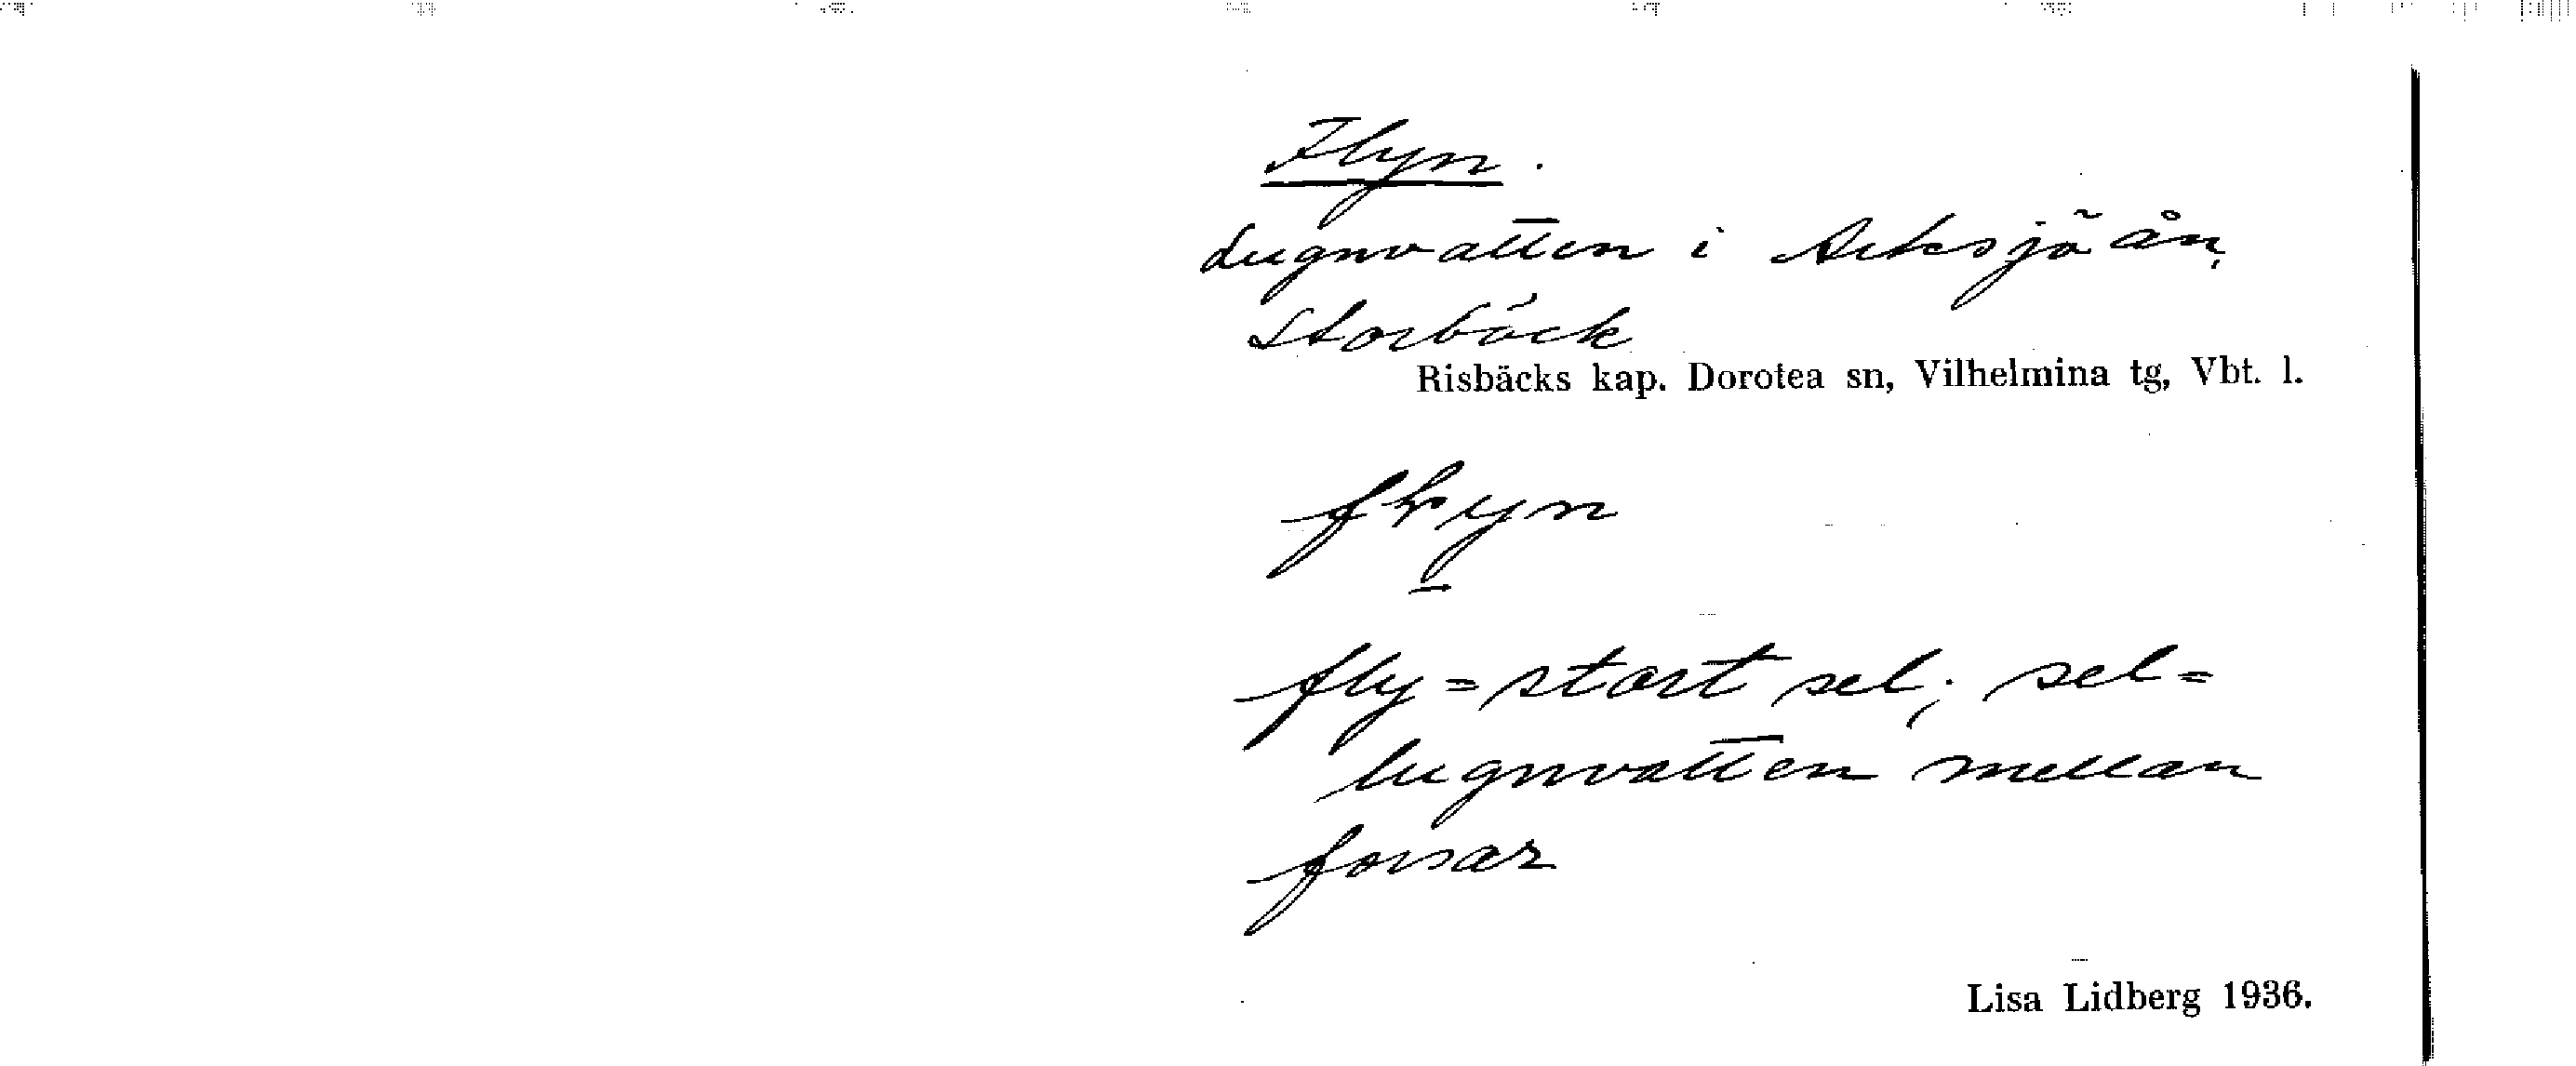 Flyn.
Lugnvatten i Arksjöån,
Storbäck
Risbäcks kap. Dorotea sn, Vilhelmina tg, Vbt. l.
flyn
fly = stort sel; sel =
lugnvatten mellan
forsar
Lisa Lidberg 1936.